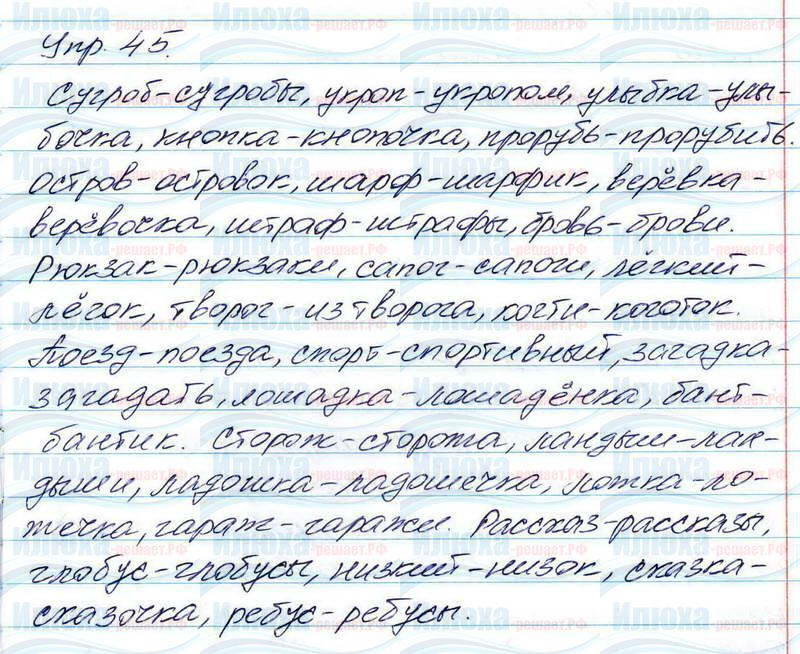 Упр. 45.
Сугроб-сугробы, укроп-укропом, улыбка-улы-
бочка, кнопка-кнопочка, прорубь-прорубить.
Остров-островок, шарф-шарфик, верёвка-
верёвочка, штраф-штрафы, бровь-брови.
Рюкзак-рюкзаки, сапог-сапоги, лёгкий-
лёгок, творог-из творога, когти-коготок.
Поезд-поезда, спорт-спортивный, загадка-
загадать, лошадка-лошадёнка, бант-
бантик. Сторож-сторожа, ландыш-лан-
дыши, ладошка-ладошечка, ложка-ло-
жечка, гараж-гаражи. Рассказ-рассказы,
глобус-глобусы, низкий-низок, сказка-
сказочка, ребус-ребусы.
Илюха-решает.РФ